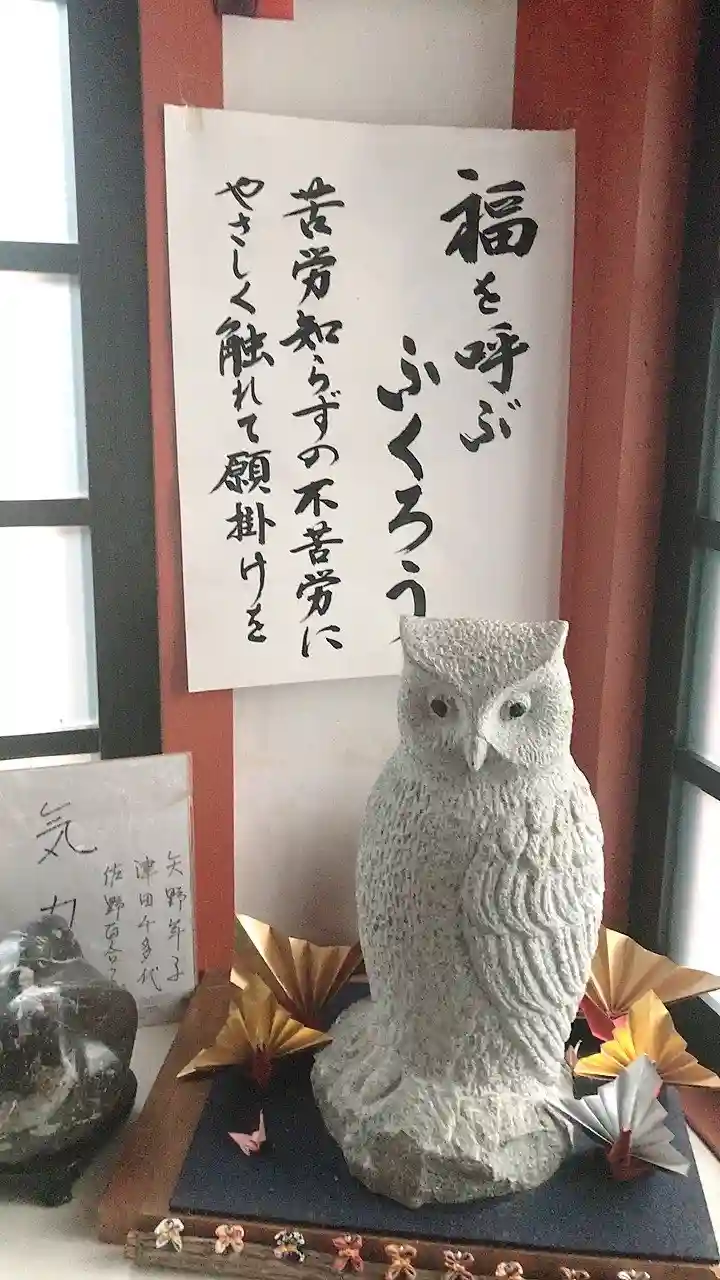 福を呼ぶ
ふくろう
苦労知らずの不苦労に
やさしく触れて願掛けを
気力
矢野年子
津田千多代
佐野百合